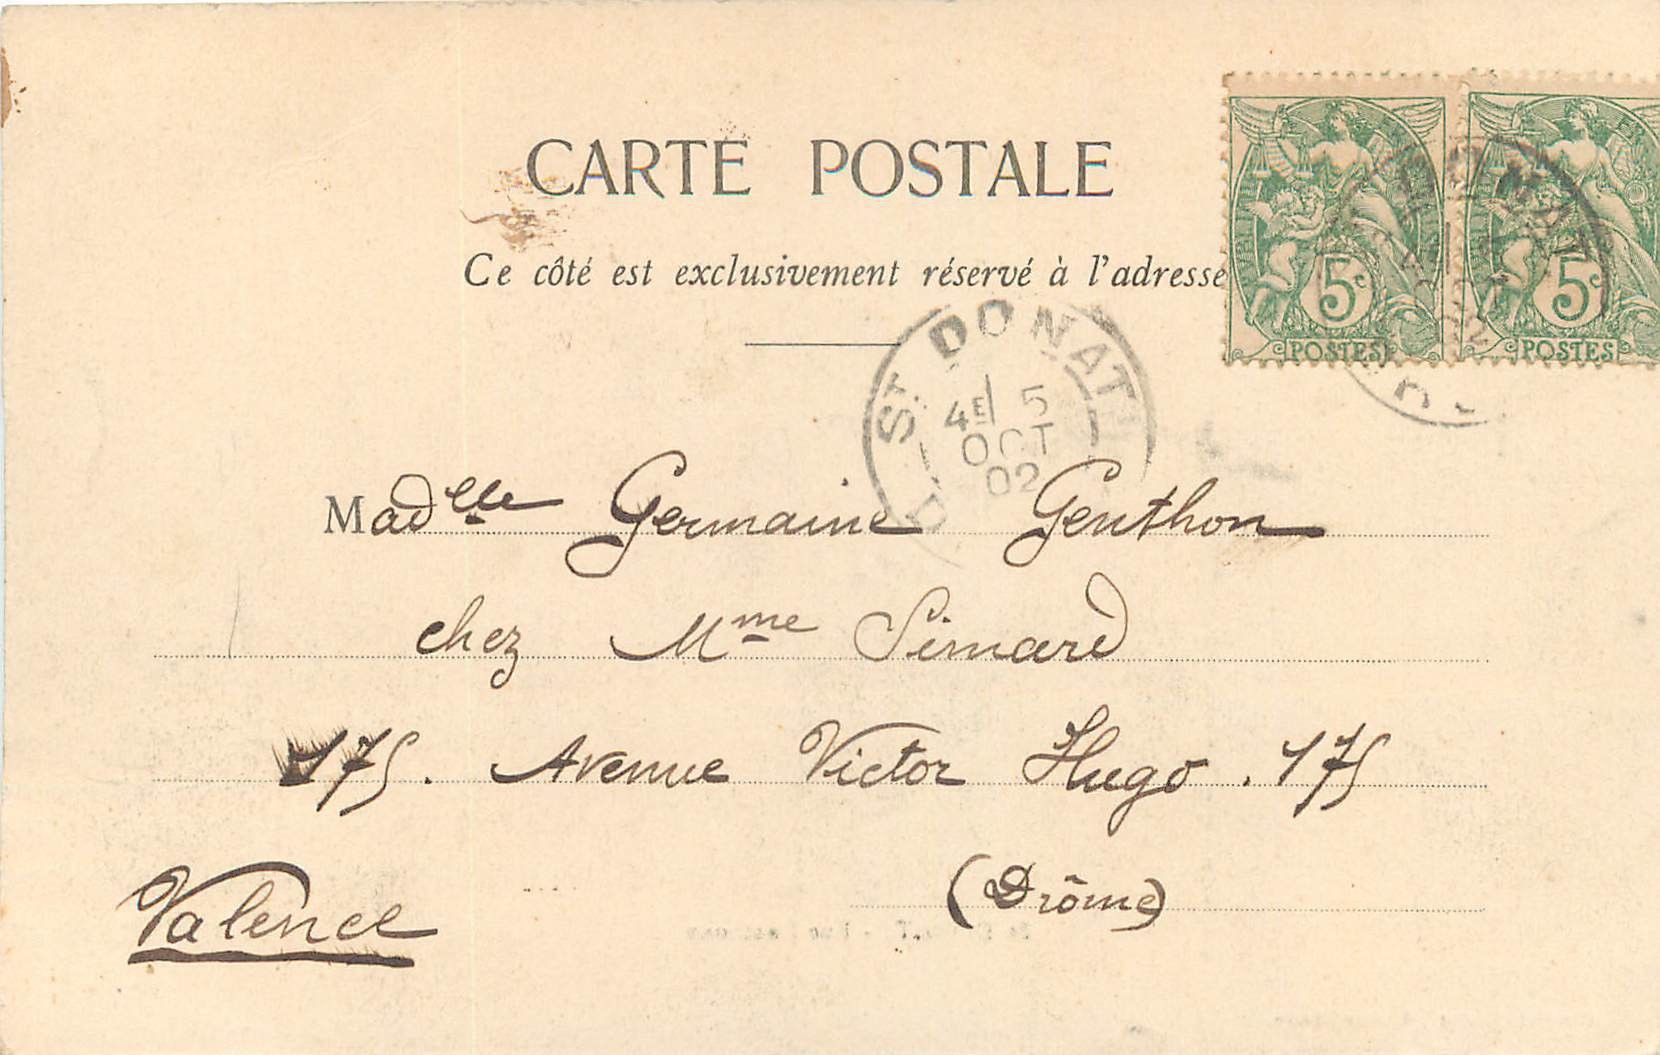 CARTE POSTALE
Ce côté est exclusivement réservé à l'adresse
5c
POSTES
5c
POSTES
St DONAT
4E 5
OCT
02
Madelle Germaine Genthon
chez Mme Simard
175. Avenue Victor Hugo. 175
Valence (Drôme)